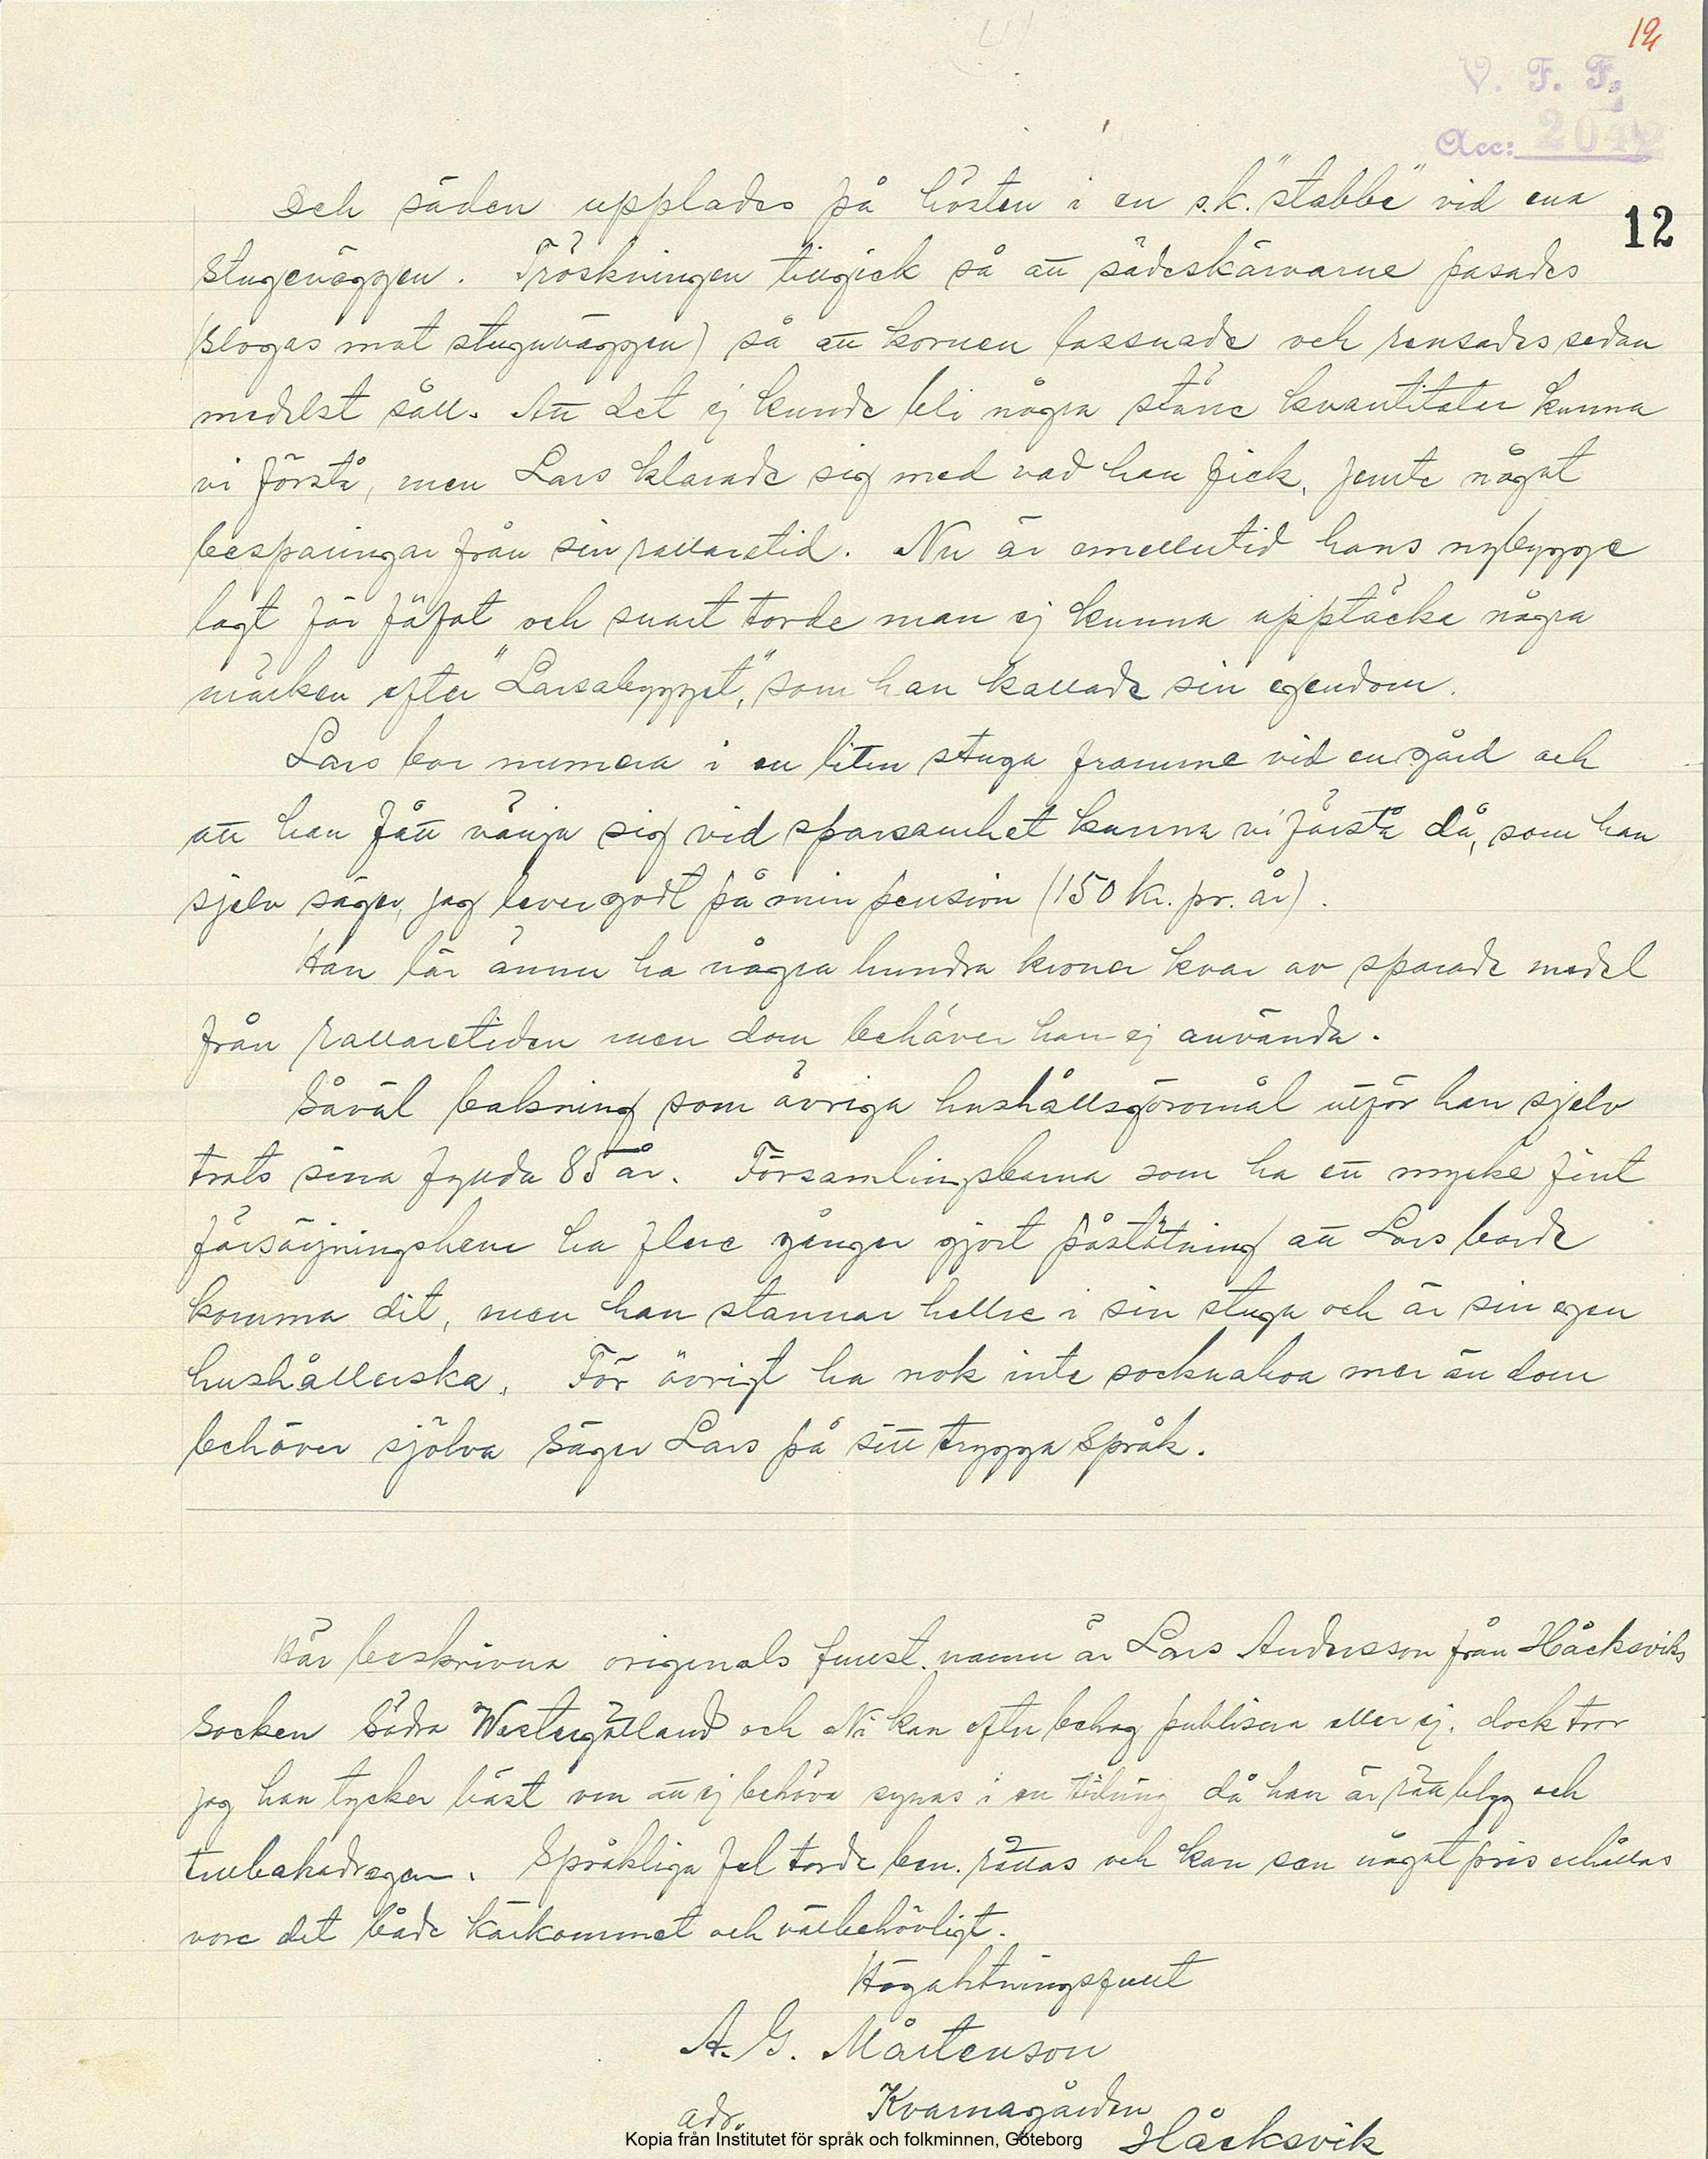 12
V. F. F.
Acc: 2042
12
Och säden upplades på hösten i en s.k. "stabbe" vid ena
stugeväggen. Tröskningen tilgick så att sädeskärvarne pasades
(slogas mot stuguväggen) så att kornen lossnade och rensades sedan
medelst såll. Att det ej kunde bli några större kvantiteter kunna
vi förstå, men Lars klarade sig med vad han fick, jemte något
besparingar från sin rallaretid. Nu är emellertid hans nybygge
lagt för fäfot och snart torde man ej kunna upptäcka några
märken efter "Larsabygget," som han kallade sin egendom.
Lars bor numera i en liten stuga framme vid en gård och
att han fått vänja sig vid sparsamhet kunna vi förstå då, som han
sjelv säger, jag lever godt på min pension (150 kr. pr. år).
Han lär ännu ha några hundra kronor kvar av sparade medel
från rallaretiden men dom behöver han ej använda.
Såväl bakning som övriga hushållsgöromål utför han sjelv
trots sina fyllda 85 år. Församlingsborna som ha ett mycke fint
försörjningshem ha flere gånger gjort påstötning att Lars borde
komma dit, men han stannar hellre i sin stuga och är sin egen
hushållerska. För övrigt ha nok inte socknaboa mer än dom
behöver sjölva säger Lars på sitt trygga språk.
Här beskrivna originals fullst. namn är Lars Andersson från Håcksviks
Socken Södra Westergötland och Ni kan efter behag publisera eller ej. dock tror
jag han tycker bäst om att ej behöva synas i en tidning då han är rätt blyg och
tillbakadragen. Språkliga fel torde ben. rättas och kan sen något pris erhållas
vore det både kärkommet och välbehövligt.
Högaktningsfullt
A. G. Mårtenson
adr. Kvarnagården
Håcksvik
Kopia från Institutet för språk och folkminnen, Göteborg